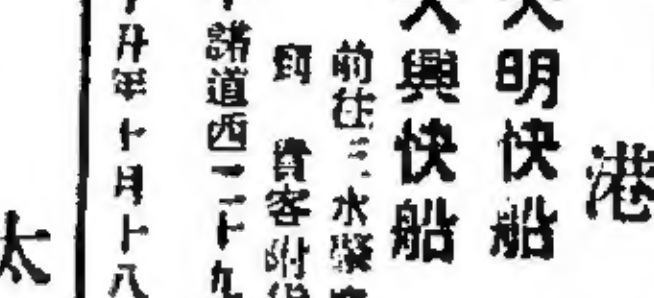 港
大明快船
大興快船
前往三水
到 貴客附
諾道西二十九
年十月十八
太